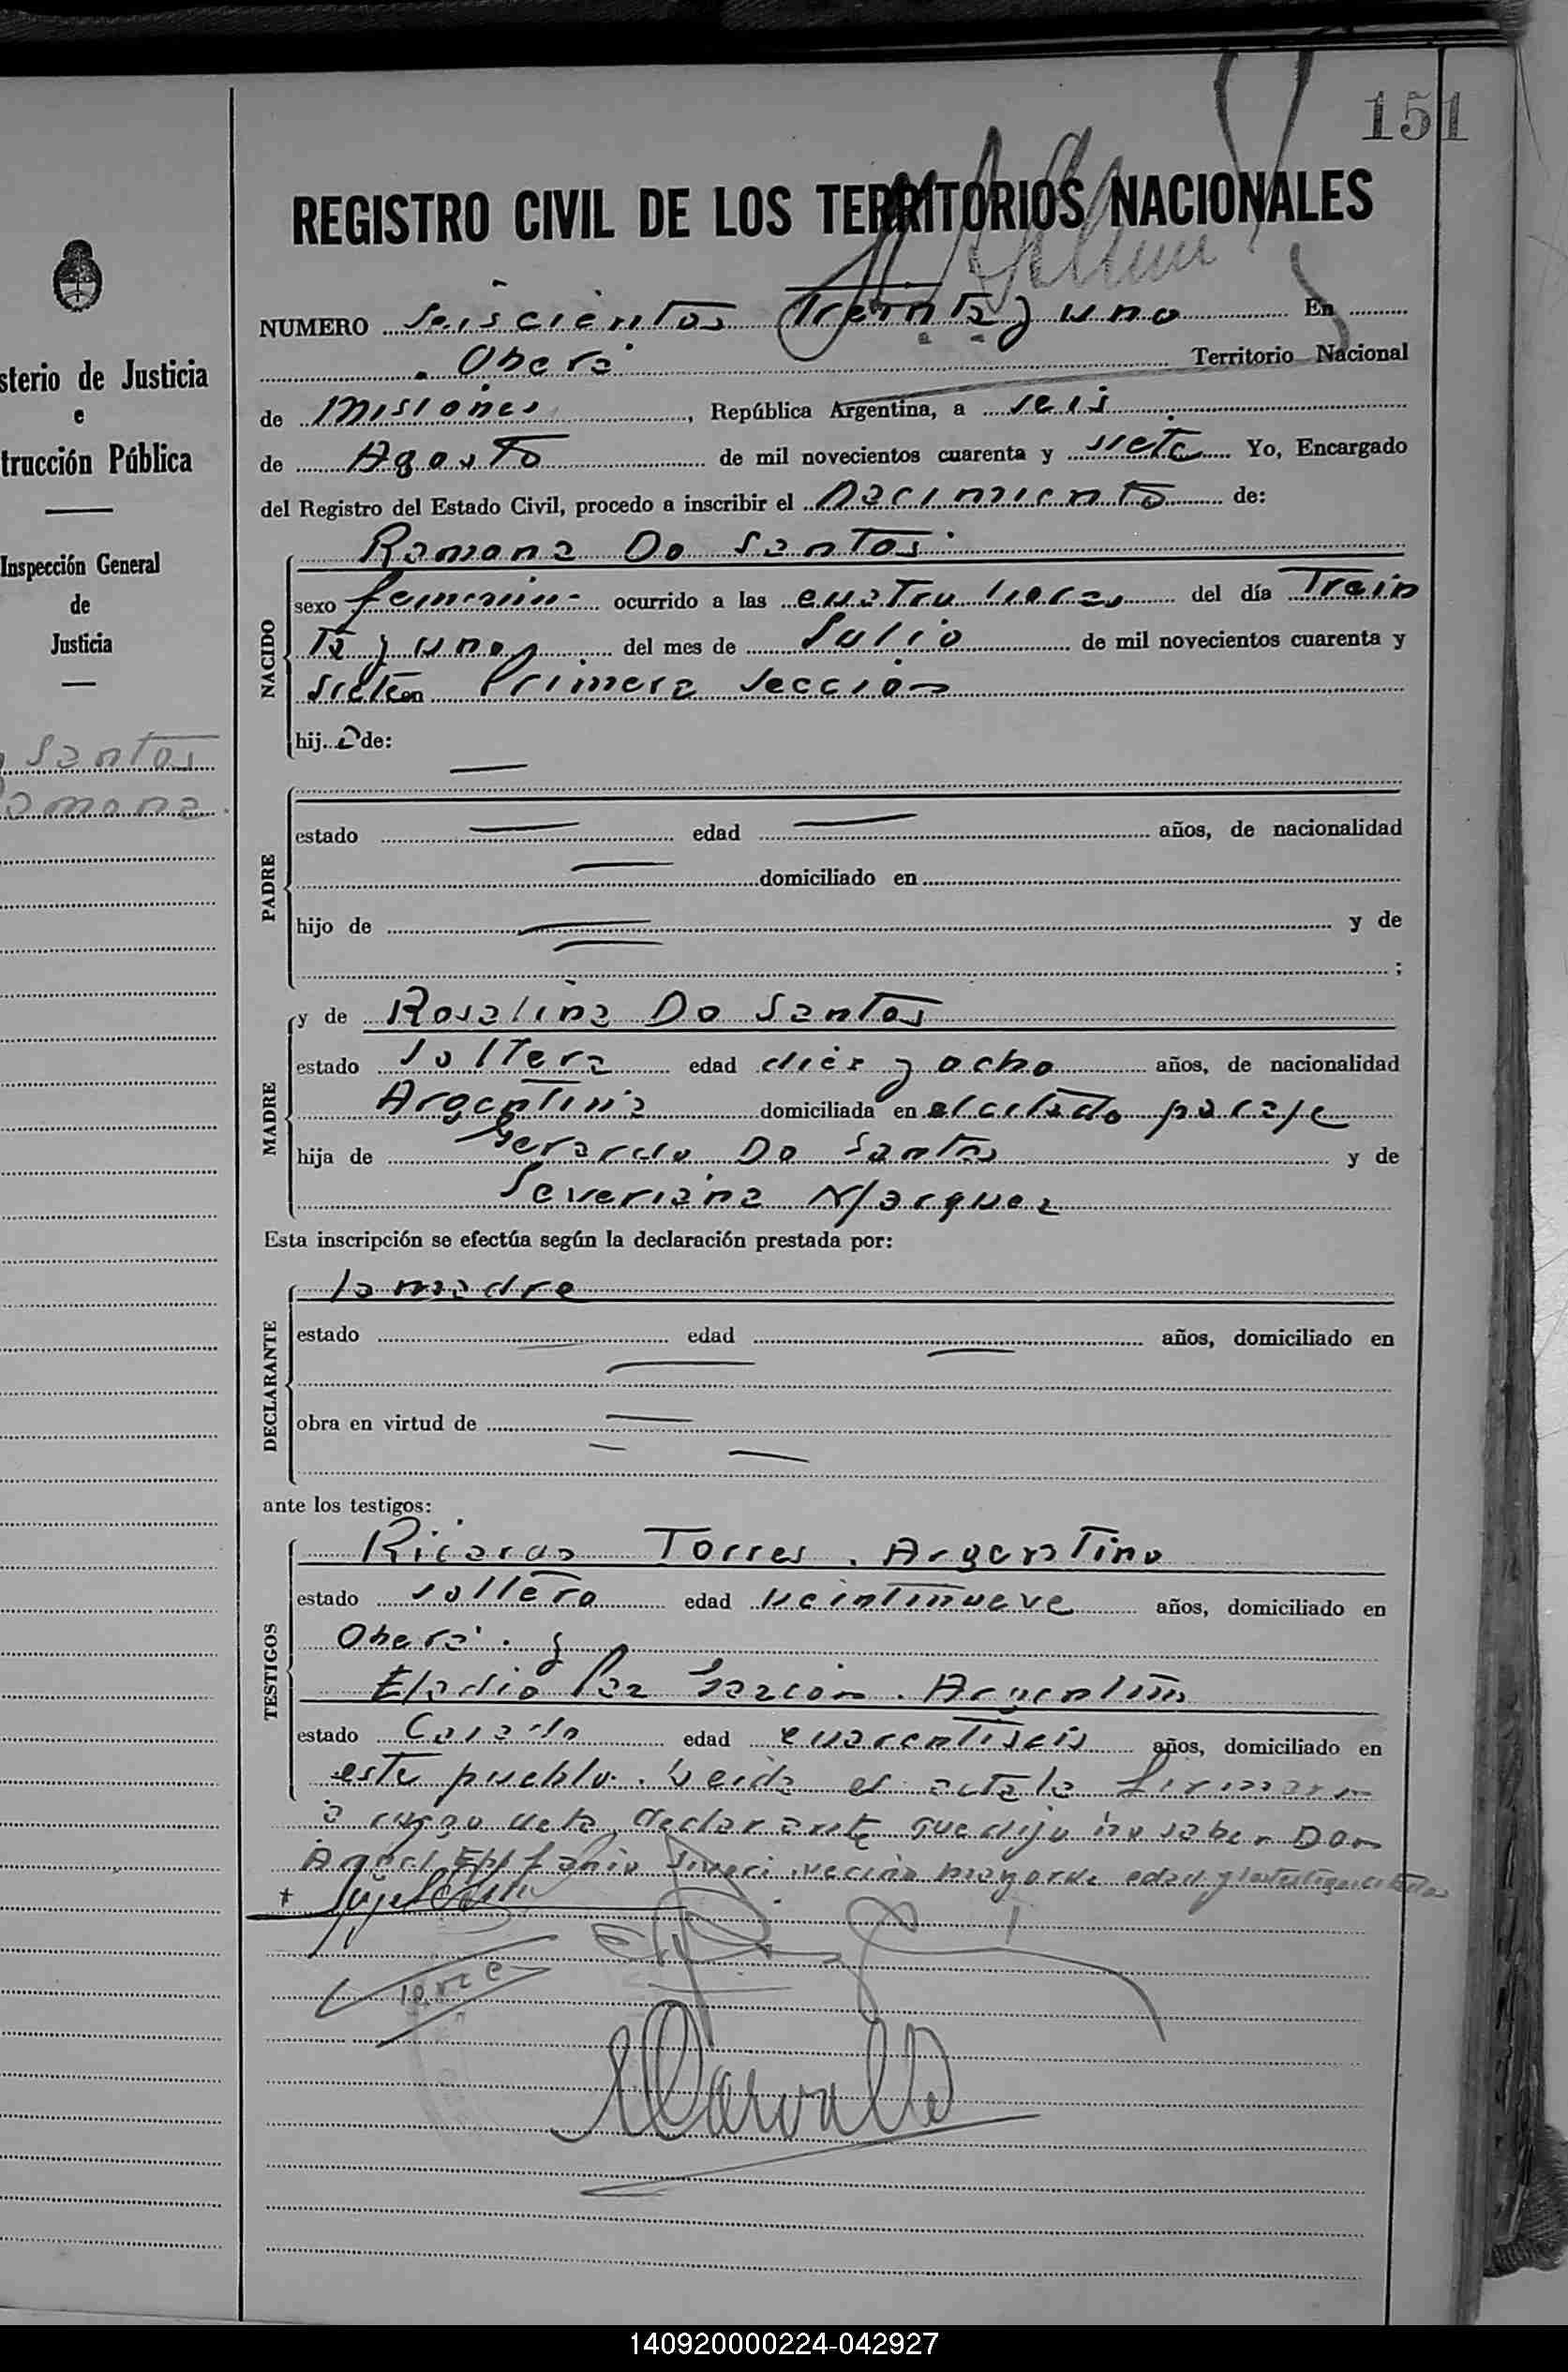 151
REGISTRO CIVIL DE LOS TERRITORIOS NACIONALES
sterio de Justicia
e
trucción Pública
Inspección General
de
Justicia
Santos
omana
NUMERO Seiscientos Treinta y uno En
Oberá Territorio Nacional
de Misiones, República Argentina, a seis
de Agosto de mil novecientos cuarenta y siete Yo, Encargado
del Registro del Estado Civil, procedo a inscribir el Nacimiento de:
NACIDO
Romana Do Santos
sexo femenino ocurrido a las cuatro horas del día Trein
ta y uno del mes de Julio de mil novecientos cuarenta y
siete en Primera Sección
hija de:
PADRE
estado edad años, de nacionalidad
domiciliado en
hijo de y de
;
MADRE
y de Rosalina Do Santos
estado soltera edad diez y ocho años, de nacionalidad
Argentina domiciliada en el citado paraje
hija de Gerardo Do Santos y de
Severiana Marquez
Esta inscripción se efectúa según la declaración prestada por:
DECLARANTE
la madre
estado edad años, domiciliado en
obra en virtud de
ante los testigos:
TESTIGOS
Ricardo Torres. Argentino
estado soltero edad veintinueve años, domiciliado en
Oberá. y
Eladio Paz Garzón. Argentino
estado Casado edad cuarentiseis años, domiciliado en
este pueblo. Leida el acta la firmaron
a ruego de la declarante que dijo no saber Don
Angel Epifanio vecino mayor de edad y los testigos citados
140920000224-042927